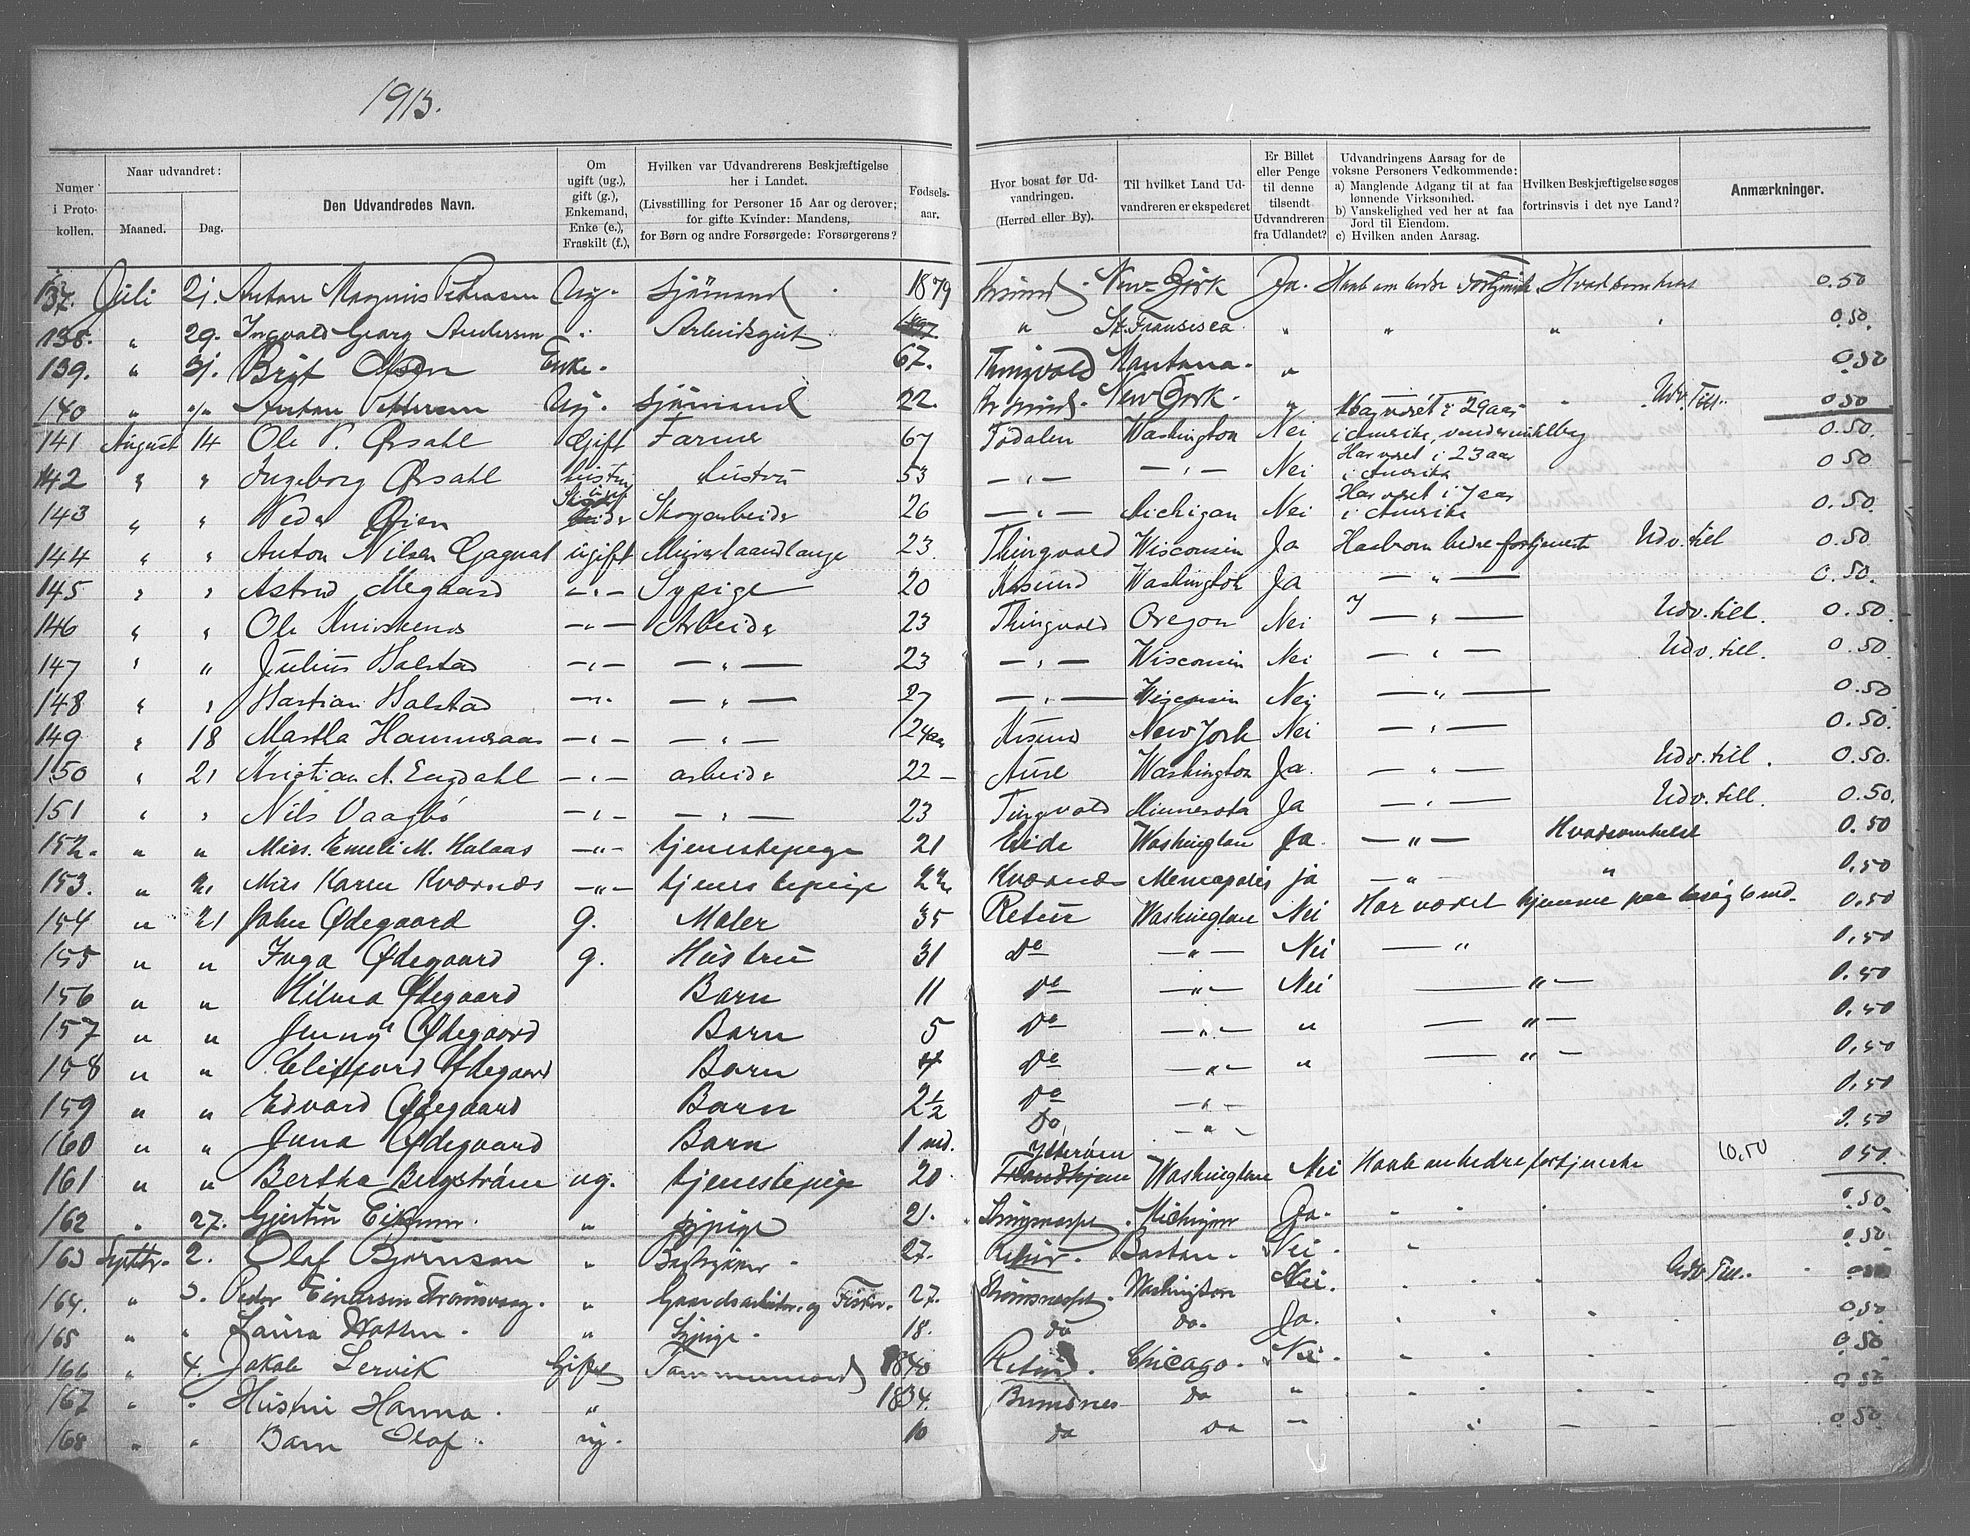 1913.
Numer i Protokollen.
Naar udvandret:
Maaned.
Dag.
Den Udvandredes Navn.
Om ugift (ug.), gift (g.), Enkemand, Enke (e.), Fraskilt (f.),
Hvilken var Udvandrerens Beskjæftigelse her i Landet.
(Livsstilling for Personer 15 Aar og derover; for gifte Kvinder: Mandens, for Børn og andre Forsørgede: Forsørgerens?
Fødselsaar.
Hvor bosat før Udvandringen.
(Herred eller By).
Til hvilket Land Udvandreren er ekspederet
Er Billet eller Penge til denne tilsendt Udvandreren fra Udlandet?
Udvandringens Aarsag for de voksne Personers Vedkommende:
a) Manglende Adgang til at faa lønnende Virksomhed.
b) Vanskelighed ved her at faa Jord til Eiendom.
c) Hvilken anden Aarsag.
Hvilken Beskjæftigelse søges fortrinsvis i det nye Land?
Anmærkninger.
137. Juli 21. Anton Magnus Petersen Ug. Sjömand 1879 Krsund. New-York Ja. Haab om bedre Fortjeneste Hvadsomhelst 0.50
138. " 29. Ingvald Georg Andersen " Arbeidsgut " St. Fransisco " " " 0.50.
139. " 31. Brit Olsen Enke. 67. Thingvold Montana. " 0.50
140 " Anton Pettersen Ug. Sjömand 22. Krsund. New York. " " Udv. Till. 0.50
141 August 14 Ole P. Ørsahl Gift Farmer 67 Todalen Washington Nei Har været i 29 aar i Amerika, 0.50.
142 " " Ingeborg Ørsahl Hustru 53 — " — — " — Nei Har været i 23 aar i Amerika 0.50
143 " " Peder Øien Skogarbeider 26 — " — Michigan Nei Har været i 7 aar i Amerika 0.50.
144 " " Anton Nilsen Gagnat ugift 23. Thingvold Wisconsin Ja Haab om bedre fortjeneste Udv. till 0.50
145 " " Astrid Megaard — " — Sypige 20 Krsund Washington Ja — " — 0.50.
146 " " Ole — " — Arbeider 23 Thingvold Oregon Nei — " — Udv. till. 0.50.
147 " " Julius Halstad — " — — " — 23 — " — Wisconsin Nei — " — Udv. till. 0.50.
148 " " Hartian Halstad — " — — " — 27 — " — Wisconsin Nei — " — 0.50
149 " 18 Martha Hammeraas — " — — " — 24 aar Krsund New York Nei — " — 0.50.
150 " 21 Kristian A. Engdahl — " — arbeider 22 — Aure Washington Ja. — " — Udv. till. 0.50.
151 " " Nils Vaagbö — " — — " — 23 Tingvold Minnesota Ja — " — Udv. till. 0.50.
152. " " Miss. Emeli M. Halaas — " — tjenestepige 21 Eide Washington Ja. — " — Hvadsomhelst 0.50
153. " 21 Miss Karen Kværnæs — " — tjenestepige 22 Kværnæs Meneapolis ja — " — " 0,50
154 " 21 John Ødegaard g. Maler 35 Retur Washington Nei Har været hjemme paa besøg 6 md. 0,50
155 " " Inga Ødegaard g. Hustru 31 do — " — Nei — " 0,50
156 " " Hilma Ødegaard Barn 11 do — " — Nei — " — 0.50
157 " " Jenny Ødegaard Barn 5 do — " — " — " — 0,50
158 " " Clifford Ødegaard Barn 4 do — " — " — " — 0,50
159 " " Edvard Ødegaard Barn 2½ do — " — 0,50
160 " " Juna Ødegaard Barn 1 md. Do, — " — 0.50
161 " " Bertha Bergström ug. tjenestepige 20 Ytterøen Trondhjem Washington Nei Haab om bedre fortjeneste 10,50 0.50.
162 " 27. Gjertru " Sypige 21. Michigan Ja. " " 0.50.
163 Septbr. 2. Olaf Bjørnson " 27. Retur. Boston. Nei. " 0.50.
164. " 3. Peder Einarsen Strømsvaag. " Gaardsarbeider og Fisker. 27. Strømsneset. Washington Nei. " " " Udv. Till. 0.50
165 " " Laura " Sypige. 18. do do. Ja. " " " 0.50
166 " 4. Jakob Lervik Gift Tømmermand 1840 Retur. Chicago. Nei. " " " 0.50
167 " " Hustru Hanna. " 1834. Bremsnes do " " " " 0.50
168 " " Barn Olaf. ug. 10 do do " " 0.50